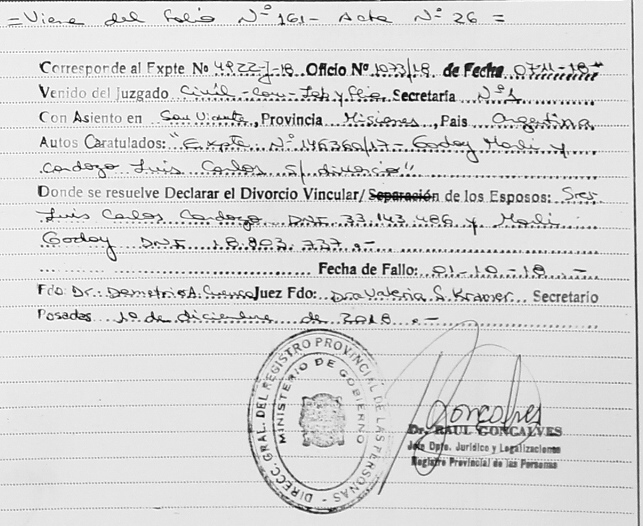 = Viene del Folio Nº 161 - Acta Nº 26 =
Corresponde al Expte No 4922-J-18 Oficio Nº 1073/18 de Fecha 07-11-18
Venido del Juzgado Civil - Com - Lab y Flia Secretaria Nº 1
Con Asiento en San Vicente, Provincia Misiones, Pais Argentina
Autos Caratulados: "Expte Nº 146360/17 - Godoy Marli y
Cardozo Luis Carlos S/ divorcio"
Donde se resuelve Declarar el Divorcio Vincular/ Separación de los Esposos: Sres
Luis Carlos Cardozo DNI 33.143.486 y Marli
Godoy DNI 18.803.737.-
Fecha de Fallo: 01-10-18.-
Fdo Dr. Demetrio A. Cuenca Juez Fdo: Dra Valeria S. Kramer Secretario
Posadas 10 de diciembre de 2018.-
DIRECC. GRAL. DEL REGISTRO PROVINCIAL DE LAS PERSONAS
MINISTERIO DE GOBIERNO
Goncalves
Dr. RAUL GONCALVES
Jefe Dpto. Jurídico y Legalizaciones
Registro Provincial de las Personas